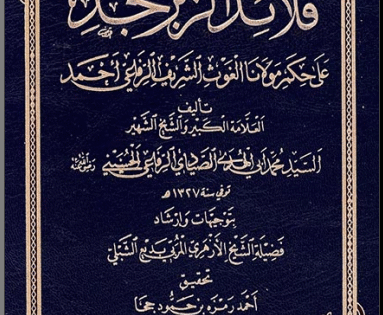 قلائد الزبرجد
على حكم مولانا الغوث الشريف الرفاعي أحمد
تأليف
العلامة الكبير والشيخ الشهير
السيد محمد أبي الهدى الصيادي الرفاعي الحسيني رضي الله عنه
توفي سنة ١٣٢٧هـ
بتوجيهات وإرشاد
فضيلة الشيخ الأزهري المربي بديع الشبلي
تحقيق
أحمد رمزه بن حمود جحا